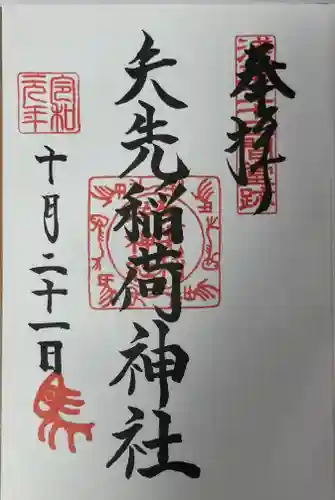 奉拝
矢先稲荷神社
令和元年
十月二十一日